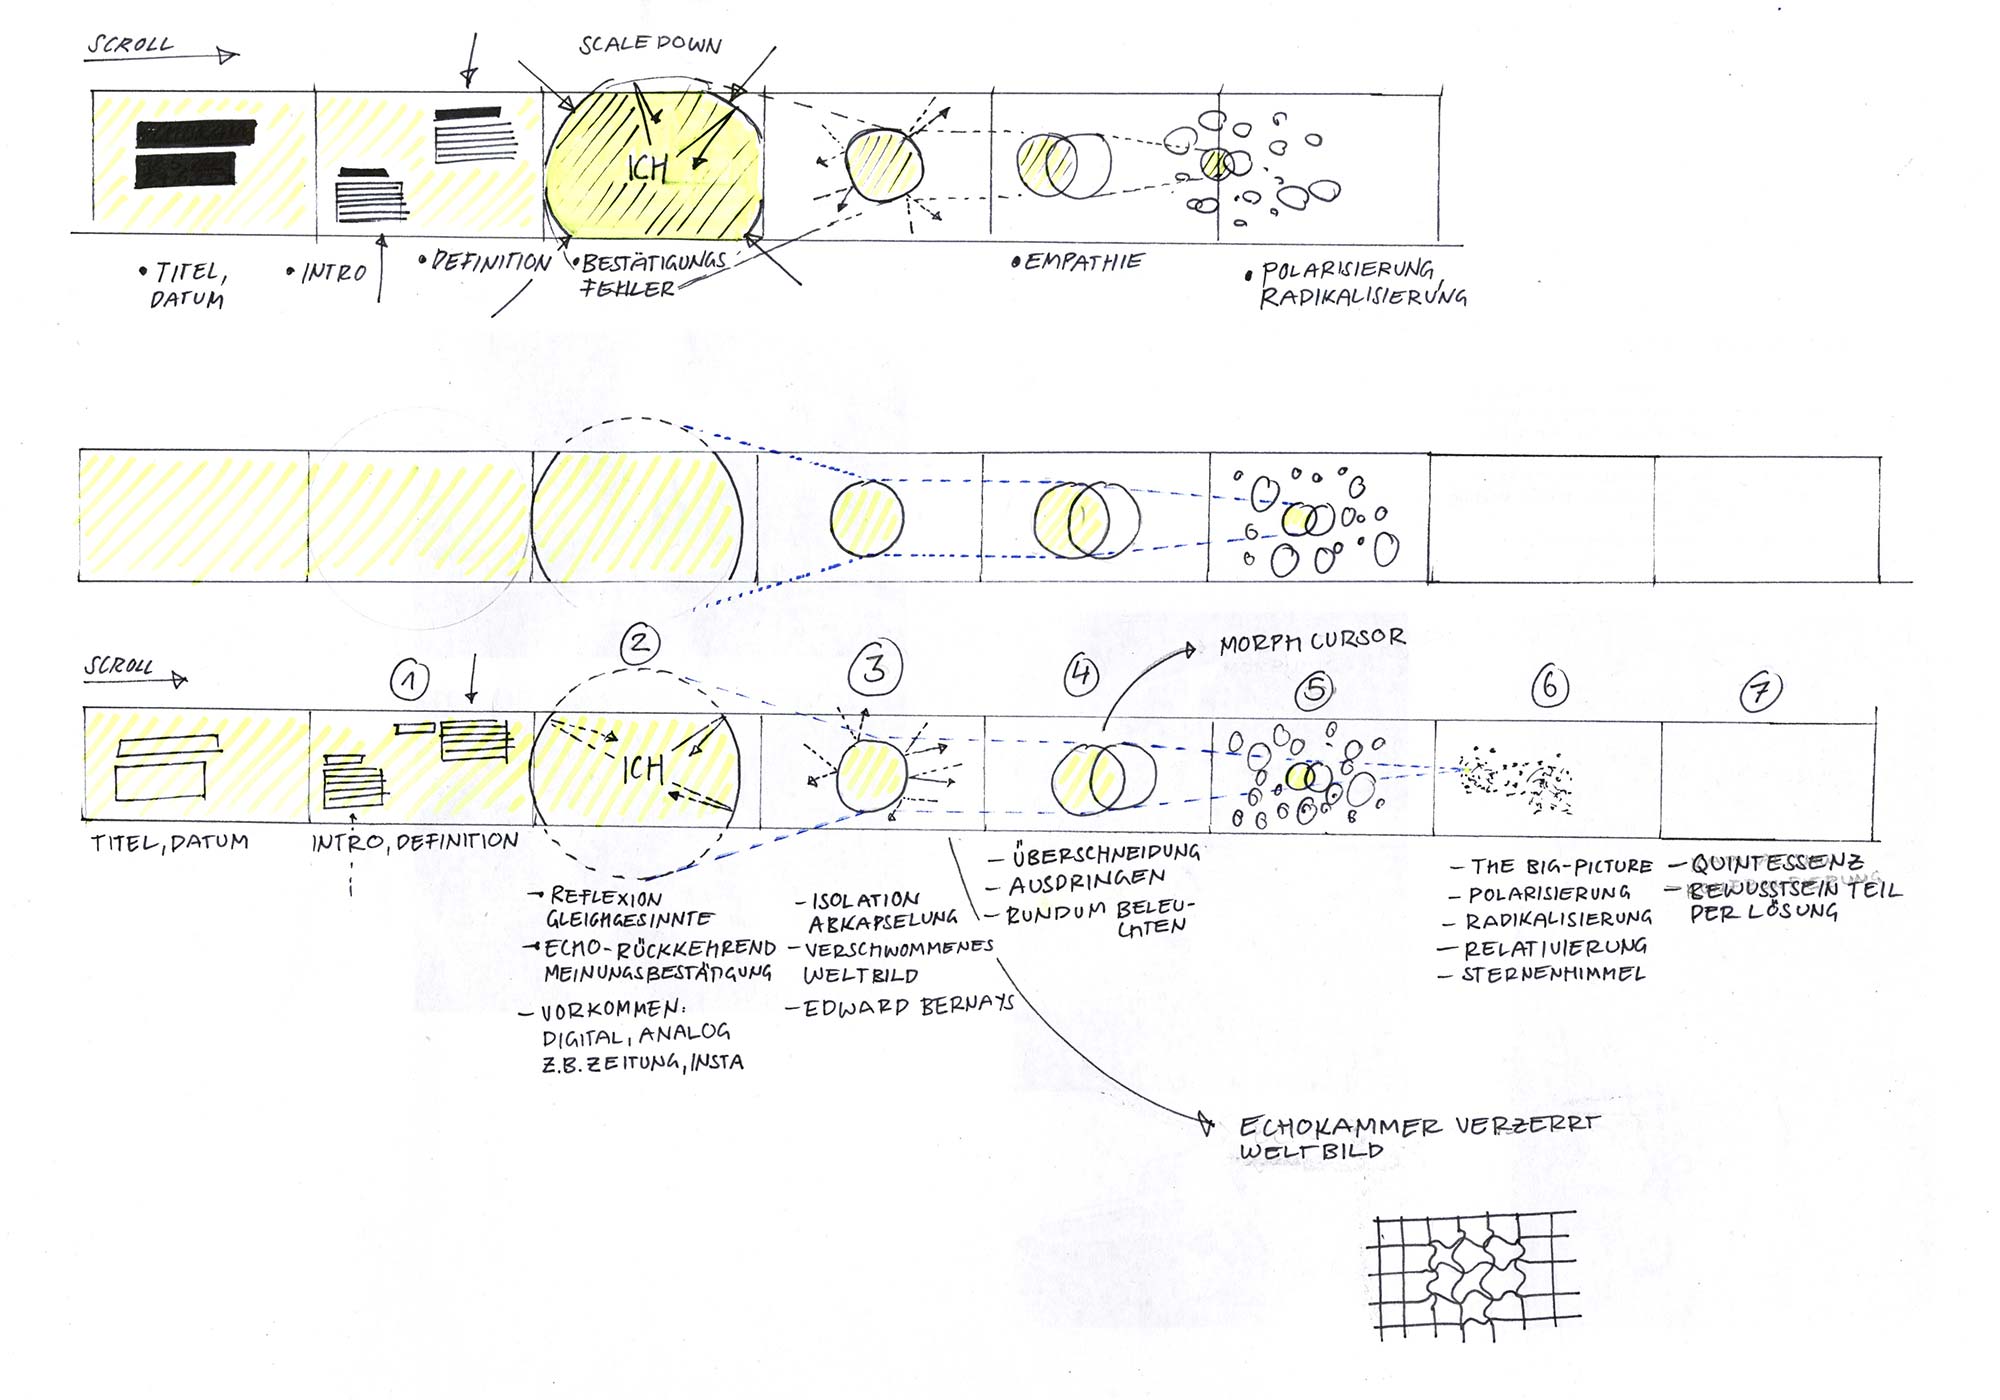 SCROLL
SCALE DOWN
ICH
• TITEL,
DATUM
• INTRO
• DEFINITION
• BESTÄTIGUNGS
FEHLER
• EMPATHIE
• POLARISIERUNG,
RADIKALISIERUNG
SCROLL
1
2
3
4
5
6
7
MORPH CURSOR
ICH
TITEL, DATUM
INTRO, DEFINITION
→ REFLEXION
GLEICHGESINNTE
→ ECHO-RÜCKKEHREND
MEINUNGSBESTÄTIGUNG
– VORKOMMEN:
DIGITAL, ANALOG
Z.B. ZEITUNG, INSTA
– ISOLATION
ABKAPSELUNG
– VERSCHWOMMENES
WELTBILD
– EDWARD BERNAYS
– ÜBERSCHNEIDUNG
– AUSDRINGEN
– RUNDUM BELEU-
CHTEN
– THE BIG-PICTURE
– POLARISIERUNG
– RADIKALISIERUNG
– RELATIVIERUNG
– STERNENHIMMEL
– QUINTESSENZ
– BEWUSSTSEIN TEIL
DER LÖSUNG
ECHOKAMMER VERZERRT
WELTBILD